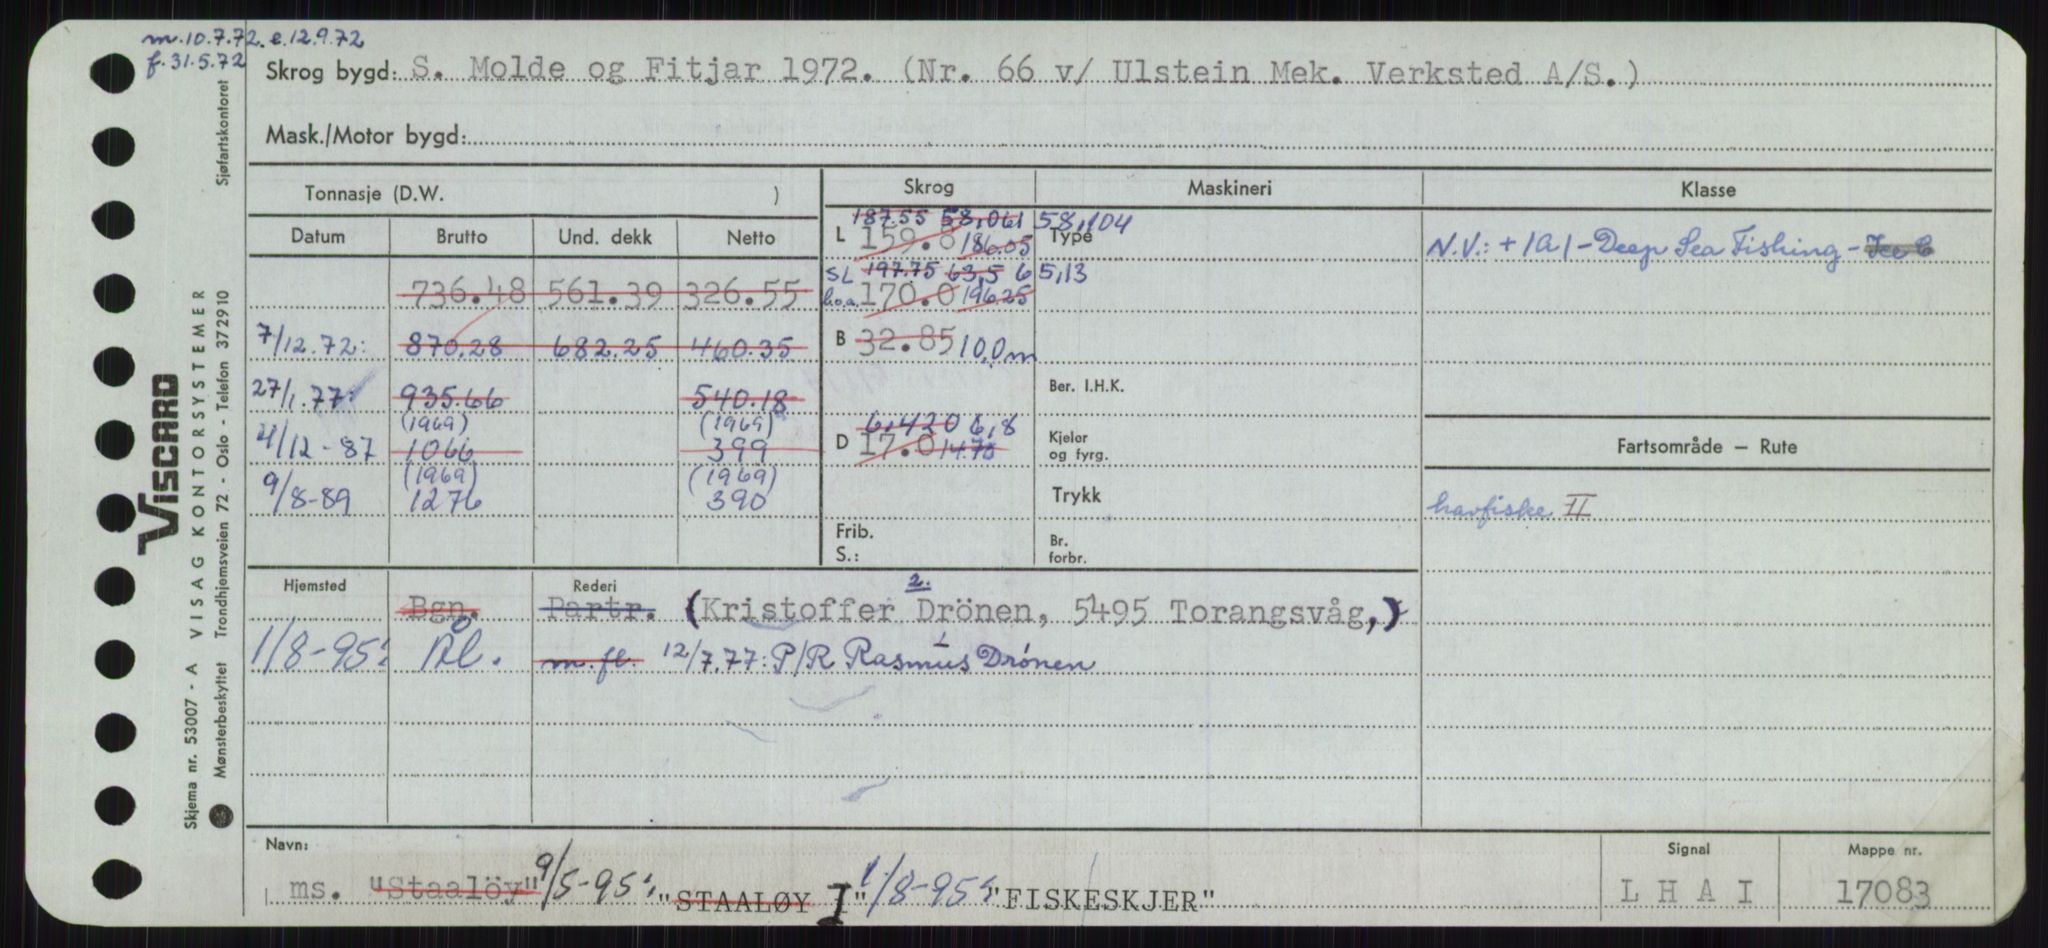 m.10.7.72. e.12.9.72
f.31.5.72
Skrog bygd: S. Molde og Fitjar 1972. (Nr. 66 v/ Ulstein Mek. Verksted A/S.)
Mask./Motor bygd:
Tonnasje (D.W. ) Skrog Maskineri Klasse
Datum Brutto Und. dekk Netto
187.55 58,061 58,104
L 159.8 186.05 Type
N.V.: + 1A1 - Deep Sea Fishing - Ice C
SL 197.75 63,5 65,13
736.48 561.39 326.55
l.o.a. 170.0 196.25
7/12.72: 870.28 682.25 460.35
B 32.85 10,0m
27/1.77: 935.66 540.18
Ber. I.H.K.
(1969) (1969)
4/12-87 1066 399
6,420 6,8
D 17.0 14.75
Kjeler
og fyrg.
Fartsområde — Rute
(1969) (1969)
9/8-89 1276 390
Trykk
havfiske II
Frib.
S.:
Br.
forbr.
Hjemsted Rederi
2.
Bgn. Partr. (Kristoffer Drönen, 5495 Torangsvåg,)
1
1/8-95: Ål. m.fl. 12/7.77: P/R Rasmus Drönen
Navn: Signal Mappe nr.
ms. "Staalöy" 9/5-95: "STAALØY I" 1/8-95: "FISKESKJER" L H A I 17083
VISCARD
Skjema nr. 53007 - A VISAG KONTORSYSTEMER
Mønsterbeskyttet Trondhjemsveien 72 - Oslo - Telefon 372910 Sjøfartskontoret